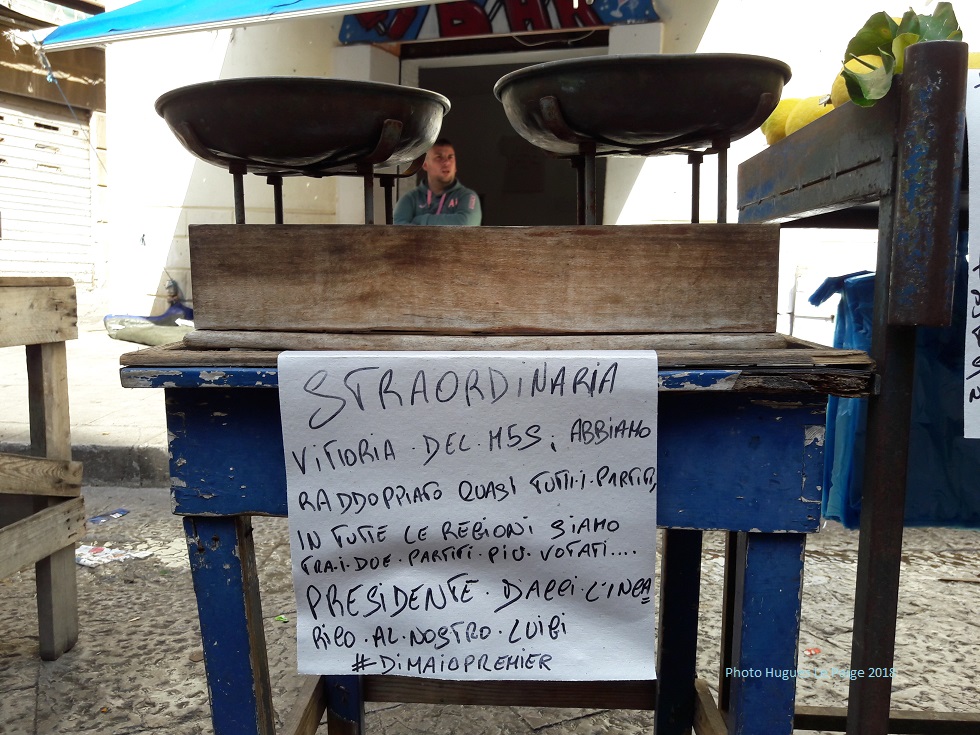 STRAORDINARIA
VITTORIA DEL M5S, ABBIAMO
RADDOPPIATO QUASI TUTTI I PARTITI,
IN TUTTE LE REGIONI SIAMO
TRA.I.DUE.PARTITI.PIÙ.VOTATI....
PRESIDENTE.DAGLI.L'INCA
RICO.AL.NOSTRO.LUIGI
#DIMAIOPREMIER
Photo Hugues Le Paige 2018